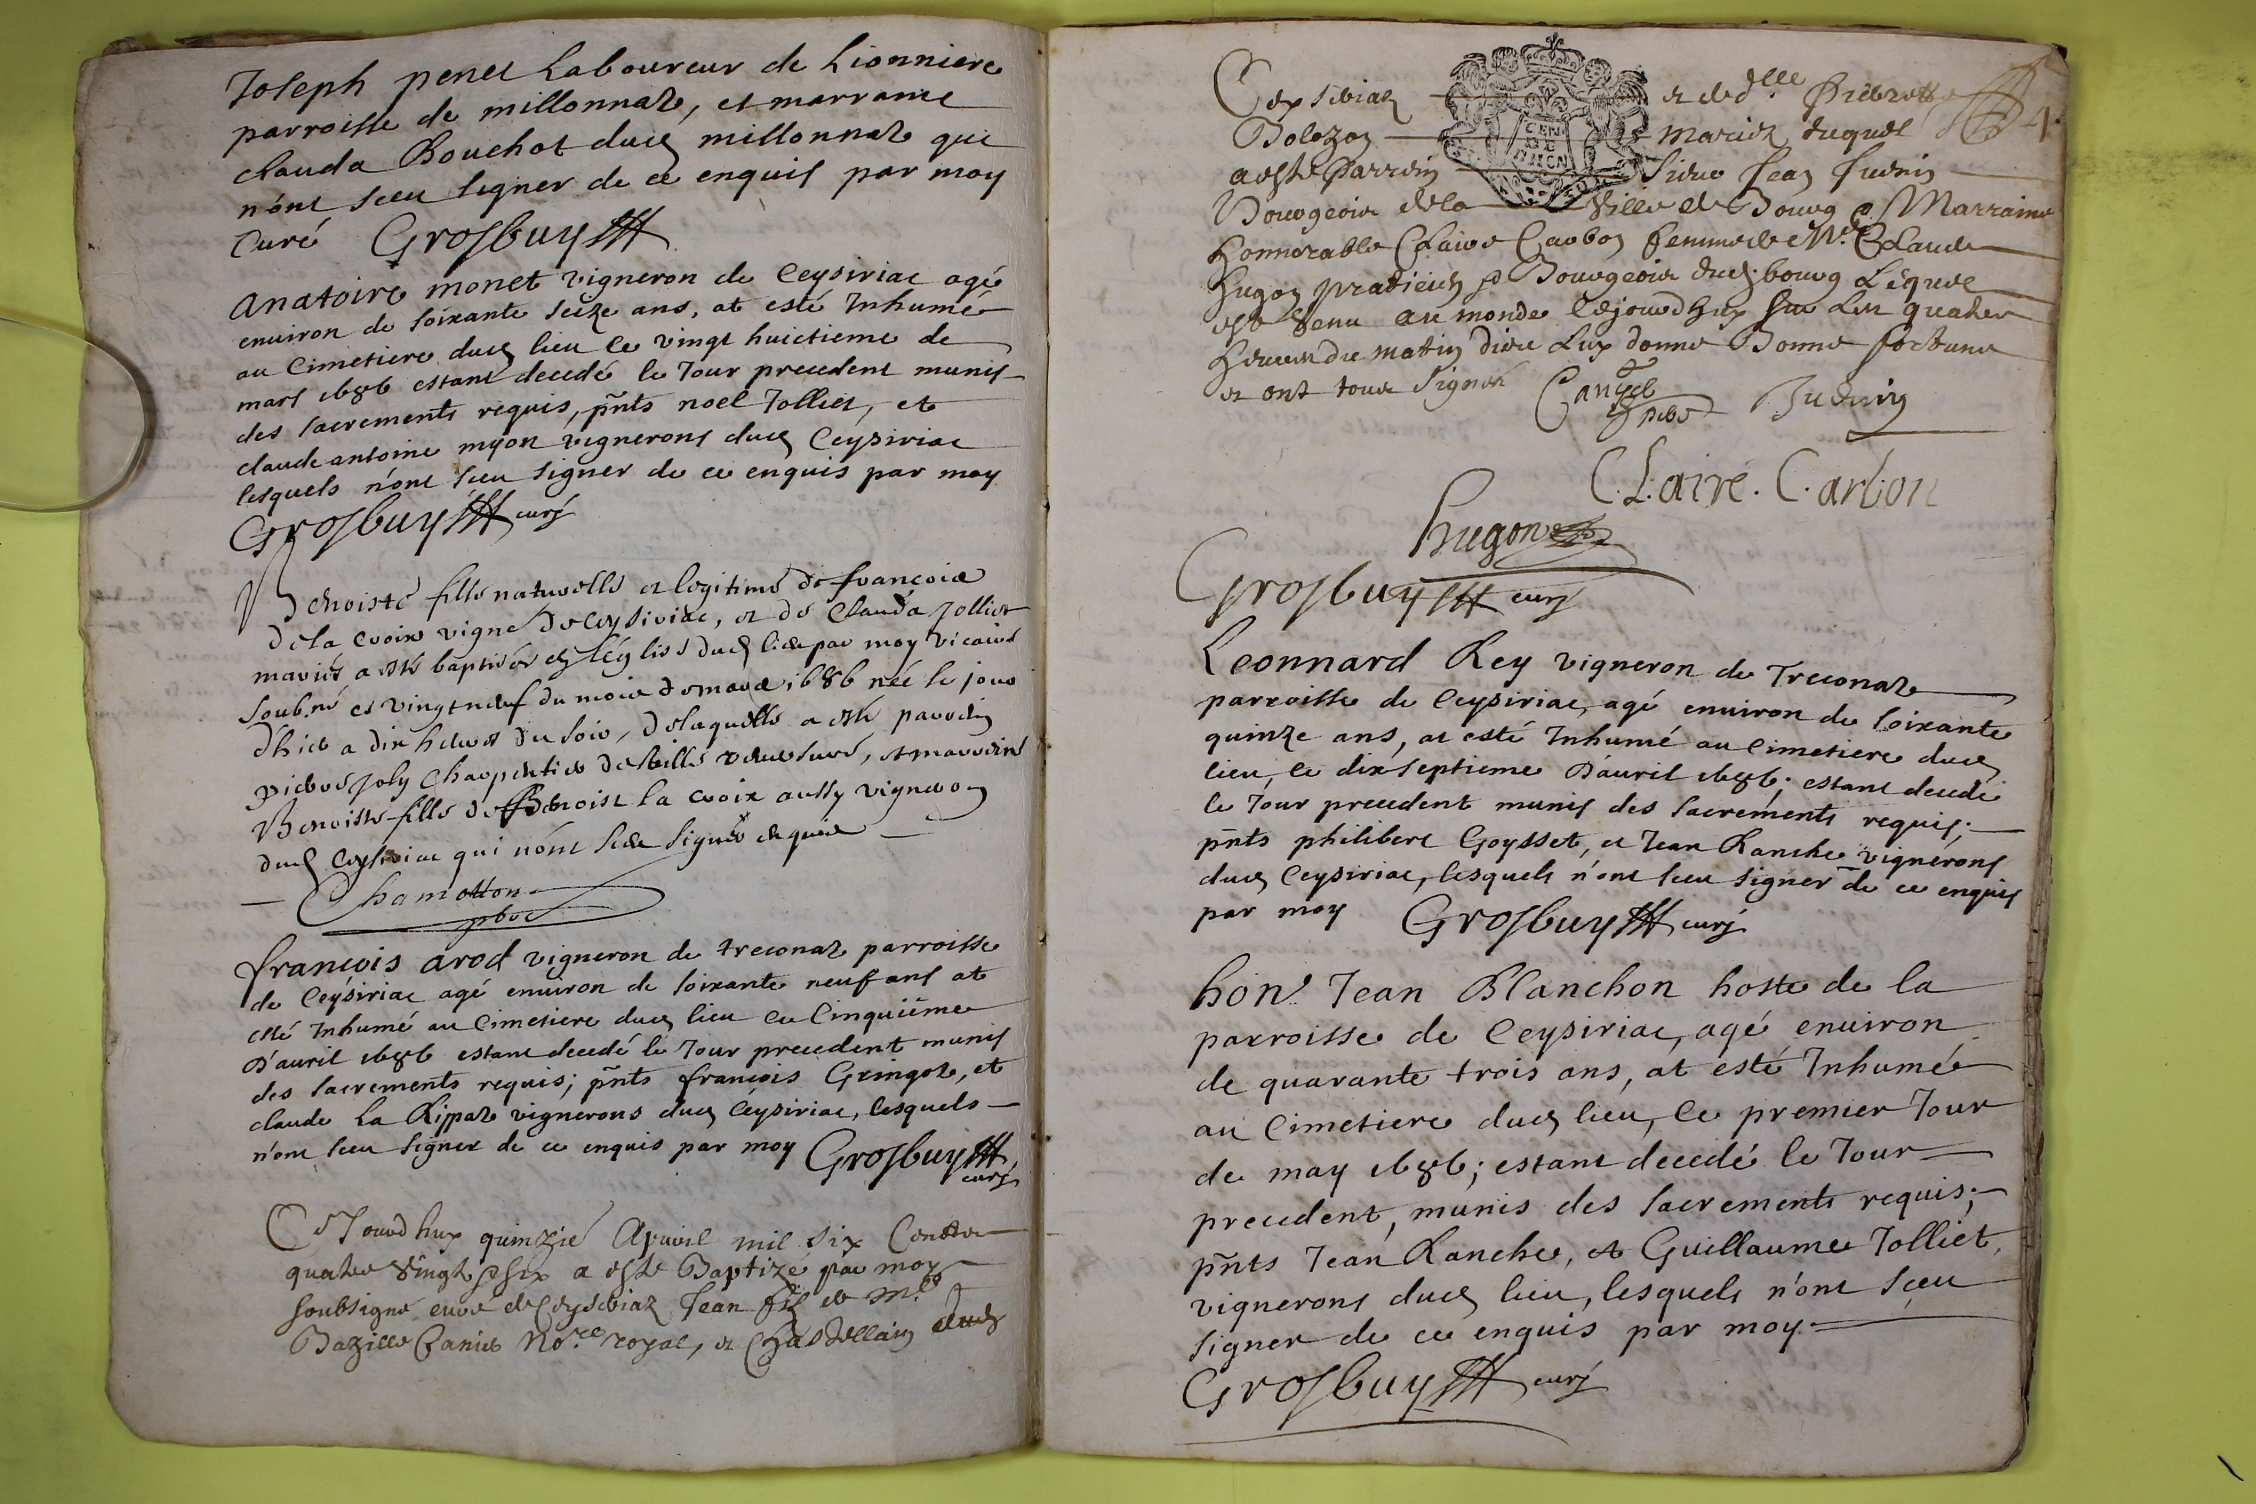 Joseph penet Laboureur de Lionniere
parroisse de millonnaz, et marrame
clauda Bouchot dud millonnaz qui
n'ont sceu signer de ce enquis par moy
Curé Grosbuy
Anatoire monet vigneron de Ceysiriac agé
enuiron de soixante seize ans, at esté Inhumé
au Cimetiere dud lieu le vingt huictieme de
mars 1686 estant decedé le Jour precedent munis
des sacrements requis, pnts noel Jolliet, et
claude antoine myon vignerons dud Ceysiriac
lesquels n'ont sceu signer de ce enquis par moy
Grosbuy curé
Benoiste fille naturelle et legitime de françois
de la croix vigne de Ceysiriac, et de Clauda Jolliet
mariés a esté baptisée en léglise dud lieu par moy vicaire
soub.né ce vingtneuf du mois de mars 1686 née le jour
d'hier a dix heures du soir, de laquelle a esté parrein
pierre Joly Charpentier de ville reuersure, et marreine
Benoiste fille de Benoist la croix aussy vigneron
dud Ceysiriac qui n'ont sceu signer enquis
Chamotton
pbre
françois arod vigneron de treconaz parroisse
de Ceysiriac agé enuiron de soixante neuf ans at
esté Inhumé au Cimetiere dud lieu ce Cinquiéme
D'auril 1686 estant decedé le Jour precedent munis
des sacrements requis; pnts françois Gringoz, et
claude La Rippaz vignerons dud Ceysiriac, lesquels
n'ont sceu signer de ce enquis par moy Grosbuy
curé
Ce Jourdhuy quinzié Apuril mil six Centz
quatre vingt & six a esté Baptizé par moy
soubsigné curé de Ceyseriaz Jean filz de Me
Bazille Canier No.re royal, et Chastellain dud
Ceyseriaz et de d.lle Pierrette
4.
Bolozon mariez duquel
a esté Parrein Sieur Jean
Bourgeois de la Ville de Bourg & Marraine
honnorable Claire Carbon femme de Me Claude
Hugon praticien & Bourgeois dud. bourg Lequel
est venu au monde Cejourdhuy sur les quatre
heures du matin dieu Luy donne Bonne fortune
et ont tous signéz
CLaire. C.arbon
hugon
Grosbuy curé
Leonnard Rey vigneron de Treconaz
parroisse de Ceysiriac, agé enuiron de soixante
quinze ans, at esté Inhumé au Cimetiere dud
lieu, le dixseptieme D'auril 1686; estant decedé
le Jour precedent munis des sacrements requis;
pnts philibert Goysset, et Jean Ranche vignerons
dud Ceysiriac, lesquels n'ont sceu signer de ce enquis
par moy Grosbuy curé
hon.e Jean Blanchon hoste de la
parroisse de Ceysiriac, agé enuiron
de quarante trois ans, at esté Inhumé
au Cimetiere dud lieu, le premier Jour
de may 1686; estant decedé le Jour
precedent, munis des sacrements requis;
pnts Jean Ranche, et Guillaume Jolliet,
vignerons dud lieu, lesquels n'ont sceu
signer de ce enquis par moy.
Grosbuy curé